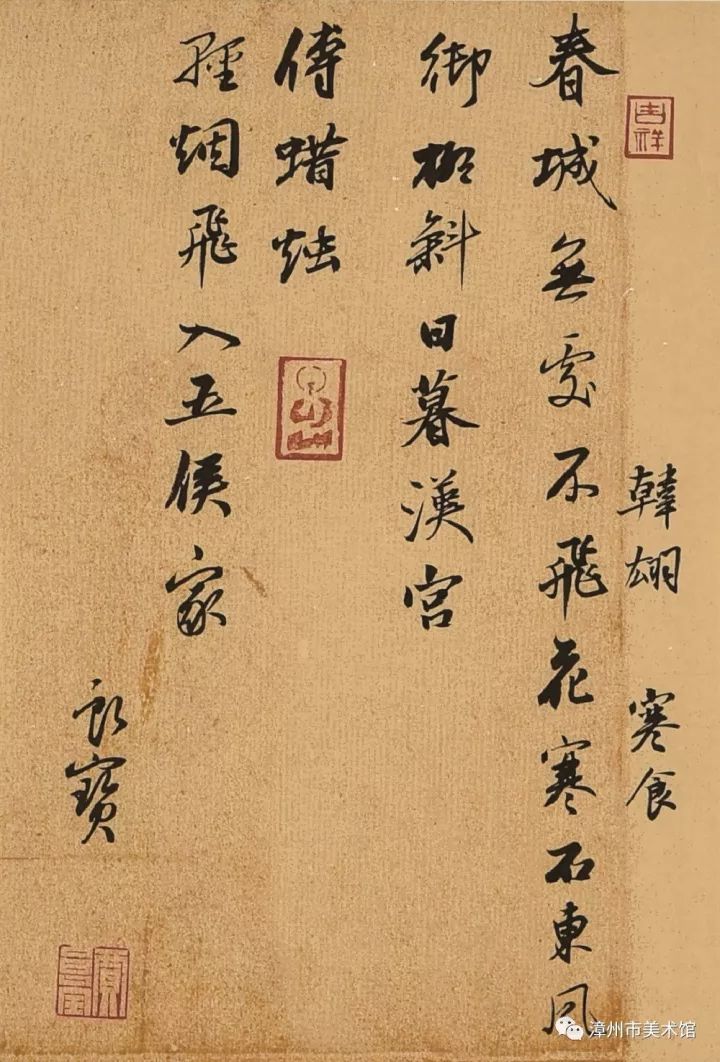 吉祥
韓翃 寒食
春城無處不飛花寒石東風
御柳斜日暮漢宮
傳蜡烛
輕烟飛入五侯家
寶
漳州市美术馆